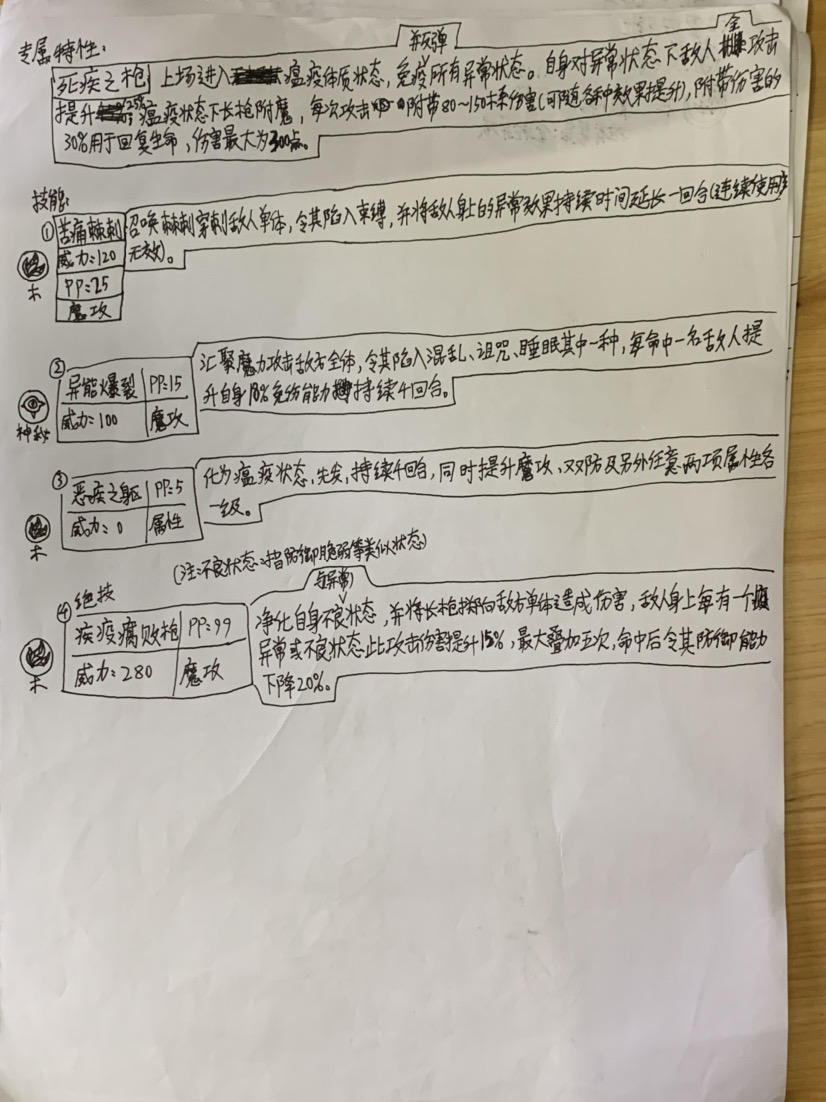 专属特性:
并反弹
全
死疾之枪 上场进入瘟疫体质状态,免疫所有异常状态。自身对异常状态下敌人攻击
提升25%瘟疫状态下长枪附魔,每次攻击附带80~150木系伤害(可随各种效果提升),附带伤害的
30%用于回复生命,伤害最大为300点。
技能:
① 苦痛棘刺 召唤棘刺穿刺敌人单体,令其陷入束缚,并将敌人身上的异常效果持续时间延长一回合(连续使用
威力:120 无效)。
PP:25
木
魔攻
② 汇聚魔力攻击敌方全体,令其陷入混乱、诅咒、睡眠其中一种,每命中一名敌人提
异能爆裂 PP:15 升自身10%免伤能力持续4回合。
威力:100 魔攻
神秘
③ 化为瘟疫状态,先发,持续4回合,同时提升魔攻、双防及另外任意两项属性各
恶疾之躯 PP:5 一级。
威力:0 属性
木
(注:不良状态:指防御脆弱等类似状态)
④ 绝技 与异常
疾疫腐败枪 PP:99 净化自身不良状态,并将长枪掷向敌方单体造成伤害,敌人身上每有一个
威力:280 魔攻 异常或不良状态此攻击伤害提升15%,最大叠加五次,命中后令其防御能力
木 下降20%。